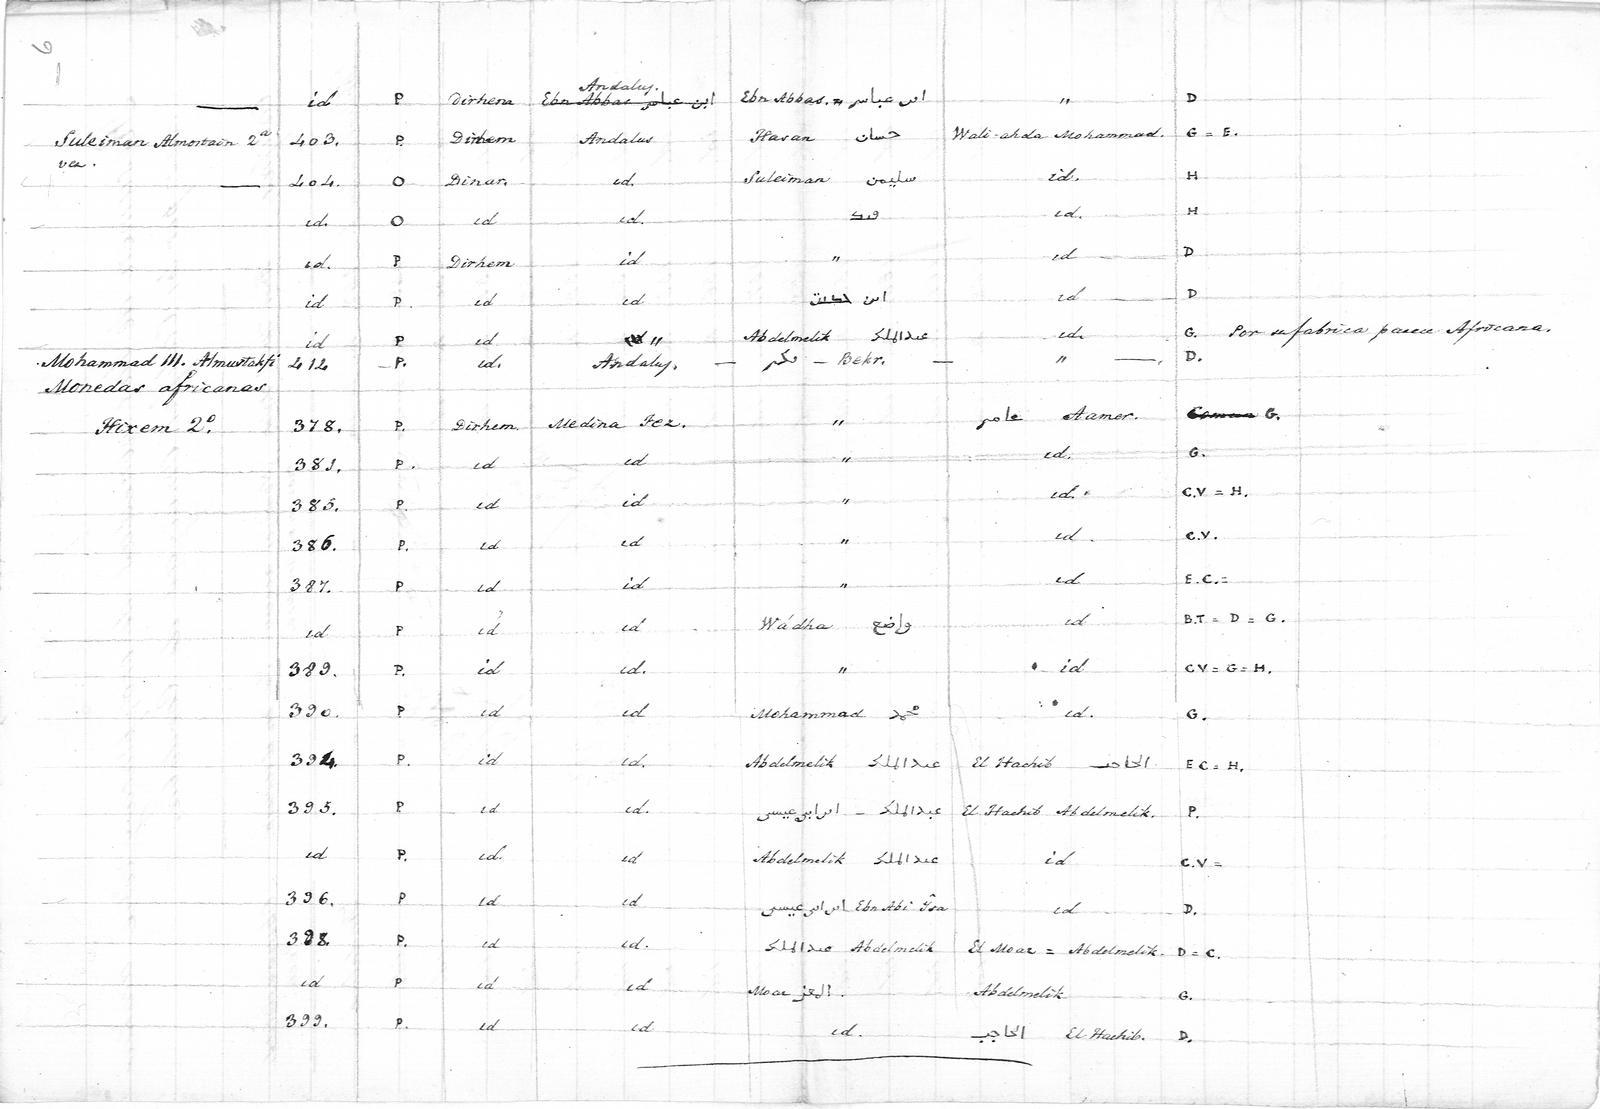 6
— id P Dirhem Andalus. Ebn Abbas ابن عباس Ebn Abbas. = ابن عباس " D
Suleiman Almostain 2ª 403. P. Dirhem Andalus Hasan حسان Wali-ahda Mohammad. G = E.
vez.
— 404. O Dinar. id. Suleiman سليمن id. H
id. O id id. id. H
id. P. Dirhem id " id D
id P. id id ابن id D
id P id " Abdelmelik عبدالملك id. G. Por su fabrica parece Africana.
Mohammad III. Almustakfi 412 P. id. Andalus. — بكر — Bekr. — " — D.
Monedas africanas
Hixem 2º. 378. P. Dirhem. Medina Fez. " عامر Aamer. G.
381. P. id id " id. G.
385. P. id id " id. C.V = H.
386. P. id id " id. C.V.
387. P id id " id E.C.=
id P id id Wádha واضح id B.T = D = G.
389. P. id id. " id C.V = G = H.
390. P id id Mohammad محمد id. G.
394. P. id id. Abdelmelik عبدالملك El Hachib الحاجب E C = H.
395. P id id. ابن ابي عيسى – عبدالملك El Hachib Abdelmelik. P.
id P. id. id Abdelmelik عبدالملك id C.V =
396. P id id ابن ابي عيسى Ebn Abi Ysa id D.
398. P. id id. عبدالملك Abdelmelik El Moaz = Abdelmelik. D = C.
id P id id Moaz المعز . Abdelmelik G.
399. P. id id id. الحاجب El Hachib. D.